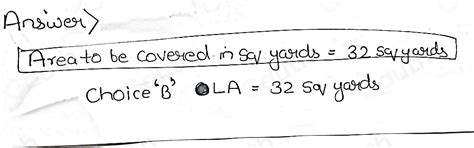 Answer>
Area to be covered in sqv yards = 32 sqv yards
Choice 'B' ●LA = 32 sqv yards